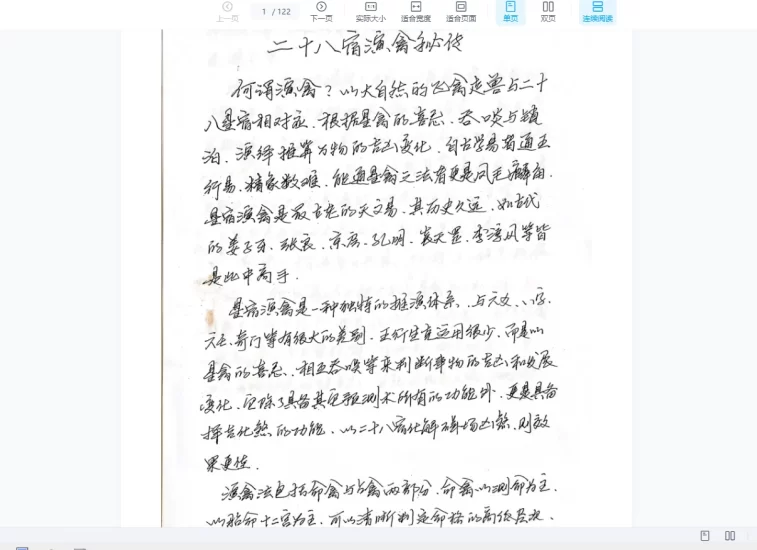 上一页
1 / 122
下一页
实际大小
适合宽度
适合页面
单页
双页
连续阅读
二十八宿演禽秘传
何谓演禽？以大自然的飞禽走兽与二十
八星宿相对应、根据星禽的喜忌、吞啖与镇
泊、演绎推算万物的吉凶变化、自古学易者通五
行易、精象数难、能通星禽之法者更是凤毛麟角、
星宿演禽是最古老的天文易、其历史久远、如古代
的姜子牙、张良、京房、孔明、袁天罡、李淳风等皆
是此中高手．
星宿演禽是一种独特的推演体系、与六爻、八字、
六壬、奇门等有很大的差别、五行生克运用很少、而是以
星禽的喜忌、相互吞啖等来判断事物的吉凶和发展
变化、它除了具备其它预测术所有的功能外、更是具备
择吉化煞的功能、以二十八宿化解磁场凶煞、则效
果更佳．
演禽法包括命禽与占禽两部分、命禽以测命为主、
以贴命十二宫为主、可以清晰判定命格的高低层次、